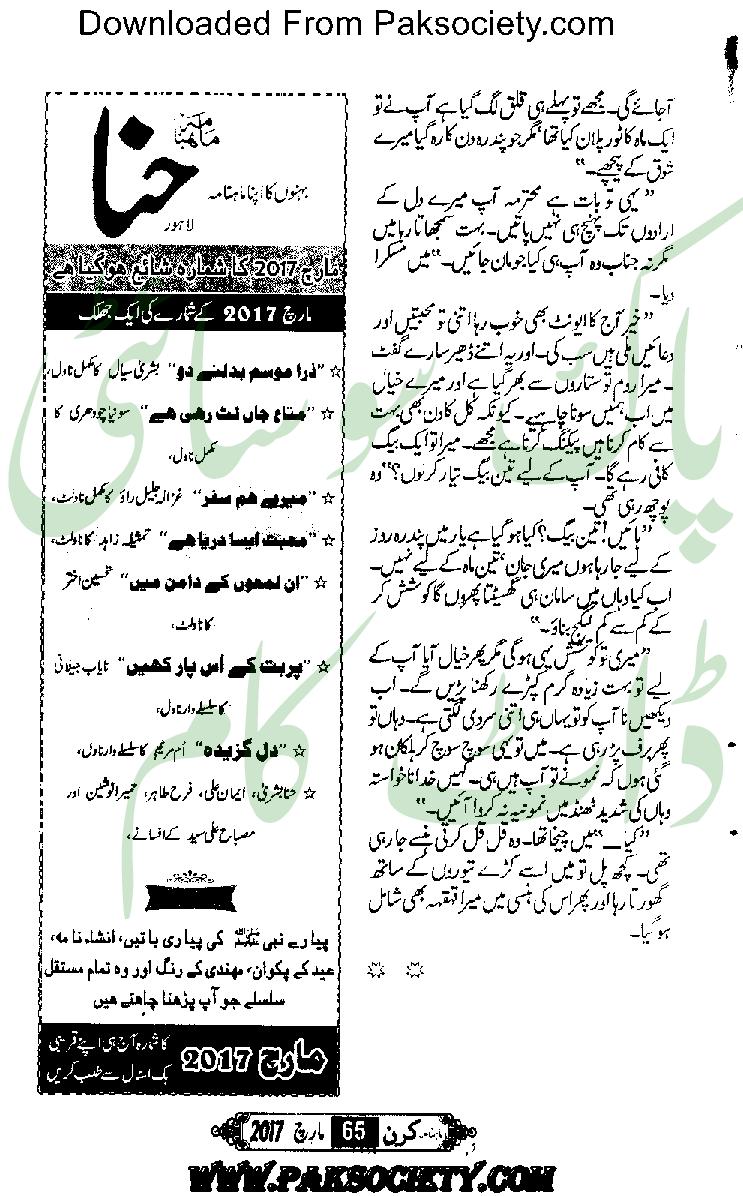 Downloaded From Paksociety.com
آجائے گی۔ مجھے تو پہلے ہی قلق لگ گیا ہے آپ نے تو
ایک ماہ کا ٹور پلان کیا تھا مگر جو پندرہ دن کا رہ گیا میرے
شوق کے پیچھے۔"
"یہی تو بات ہے محترمہ آپ میرے دل کے
ارادوں تک پہنچ ہی نہیں پاتیں۔ بہت سمجھاتا رہا میں
مگر نہ جناب وہ آپ ہی کیا جو مان جائیں۔" میں مسکرا
دیا۔
"خیر آج کا ایونٹ بھی خوب رہا اتنی تو محبتیں اور
دعائیں ملی ہیں سب کی۔ اور یہ اتنے ڈھیر سارے گفٹ
۔ میرا روم تو ستاروں سے بھر گیا ہے اور میرے خیال
میں اب ہمیں سونا چاہیے۔ کیونکہ کل کا دن بھی بہت
سے کام کرنا ہیں پیکنگ کرنا ہے مجھے۔ میرا تو ایک بیگ
کافی رہے گا۔ آپ کے لیے تین بیگ تیار کرلوں؟" وہ
پوچھ رہی تھی۔
"ہائیں! تین بیگ؟ کیا ہو گیا ہے یار میں پندرہ روز
کے لیے جا رہا ہوں میری جان' تین ماہ کے لیے نہیں۔
اب کیا وہاں میں سامان ہی گھسیٹتا پھروں گا کوشش کر
کے کم سے کم لگیج بناؤ۔"
"میری تو کوشش یہی ہوگی مگر پھر خیال آیا آپ کے
لیے تو بہت زیادہ گرم کپڑے رکھنا پڑیں گے۔ اب
دیکھیں نا آپ کو تو یہاں ہی اتنی سردی لگتی ہے۔ وہاں تو
پھر برف پڑ رہی ہے۔ میں تو یہی سوچ سوچ کر ہلکان ہو
گئی ہوں کہ نمونے تو آپ ہیں ہی۔ کہیں خدانا خواستہ
وہاں کی شدید ٹھنڈ میں نمونیہ نہ کروا آئیں۔"
"کیا۔" میں چیخا تھا۔ وہ قل قل کرتی ہنسے جا رہی
تھی۔ کچھ پل تو میں اسے کڑے تیوروں کے ساتھ
گھورتا رہا اور پھر اس کی ہنسی میں میرا قہقہہ بھی شامل
ہو گیا۔
ماہنامہ
حنا
بہنوں کا اپنا ماہنامہ
لاہور
مارچ 2017 کا شمارہ شائع ہوگیا ہے
مارچ 2017 کے شمارے کی ایک جھلک
☆ "ذرا موسم بدلنے دو" بشریٰ سیال کا مکمل ناول،
☆ "متاع جاں لٹ رہی ہے" سونیا چودھری کا
مکمل ناول،
☆ "میرے ہم سفر" غزالہ جلیل راؤ کا مکمل ناولٹ،
☆ "محبت ایسا دریا ہے" تمثیلہ زاہد کا ناولٹ،
☆ "ان لمحوں کے دامن میں" تحسین اختر
کا ناولٹ،
☆ "پربت کے اُس پار کہیں" نایاب جیلانی
کا سلسلے وار ناول،
☆ "دل گزیدہ" اُم مریم کا سلسلے وار ناول،
☆ حنا بشریٰ، ایمان علی، فرح طاہر، حمیرا نوشین اور
مصباح علی سید کے افسانے،
پیارے نبی ﷺ کی پیاری باتیں، انشاء نامہ،
عید کے پکوان، مہندی کے رنگ اور وہ تمام مستقل
سلسلے جو آپ پڑھنا چاہتے ہیں
مارچ 2017
کا شمارہ آج ہی اپنے قریبی
بک اسٹال سے طلب کریں
ماہنامہ کرن 65 مارچ 2017
WWW.PAKSOCIETY.COM
پاک سوسائٹی
ڈاٹ کام